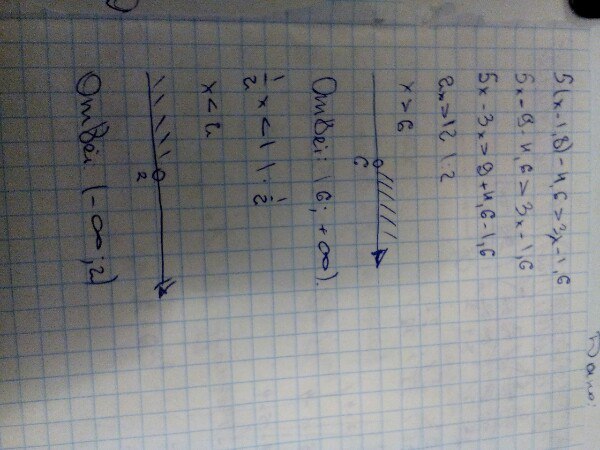 5(x-1,8)-4,6>3x-1,6
5x-9-4,6>3x-1,6
5x-3x>9+4,6-1,6
2x>12 |:2
x>6
6
Ответ: (6;+∞).
½x<1 |:½
x<2
2
Ответ: (-∞;2)